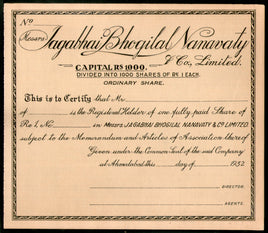 No
Messrs Jagabhai Bhogilal Nanavaty
& Co., Limited.
CAPITAL RS 1000.
DIVIDED INTO 1000 SHARES OF RE 1 EACH.
ORDINARY SHARE.
This is to Certify that Mr
of is the Registered Holder of one fully paid Share of
Re 1, No. in MESSRS JAGABHAI BHOGILAL NANAVATY & CO LIMITED
subject to the Memorandum and Articles of Association thereof
Given under the Common Seal of the said Company
at Ahmedabad this day of 1932
DIRECTOR.
AGENTS.